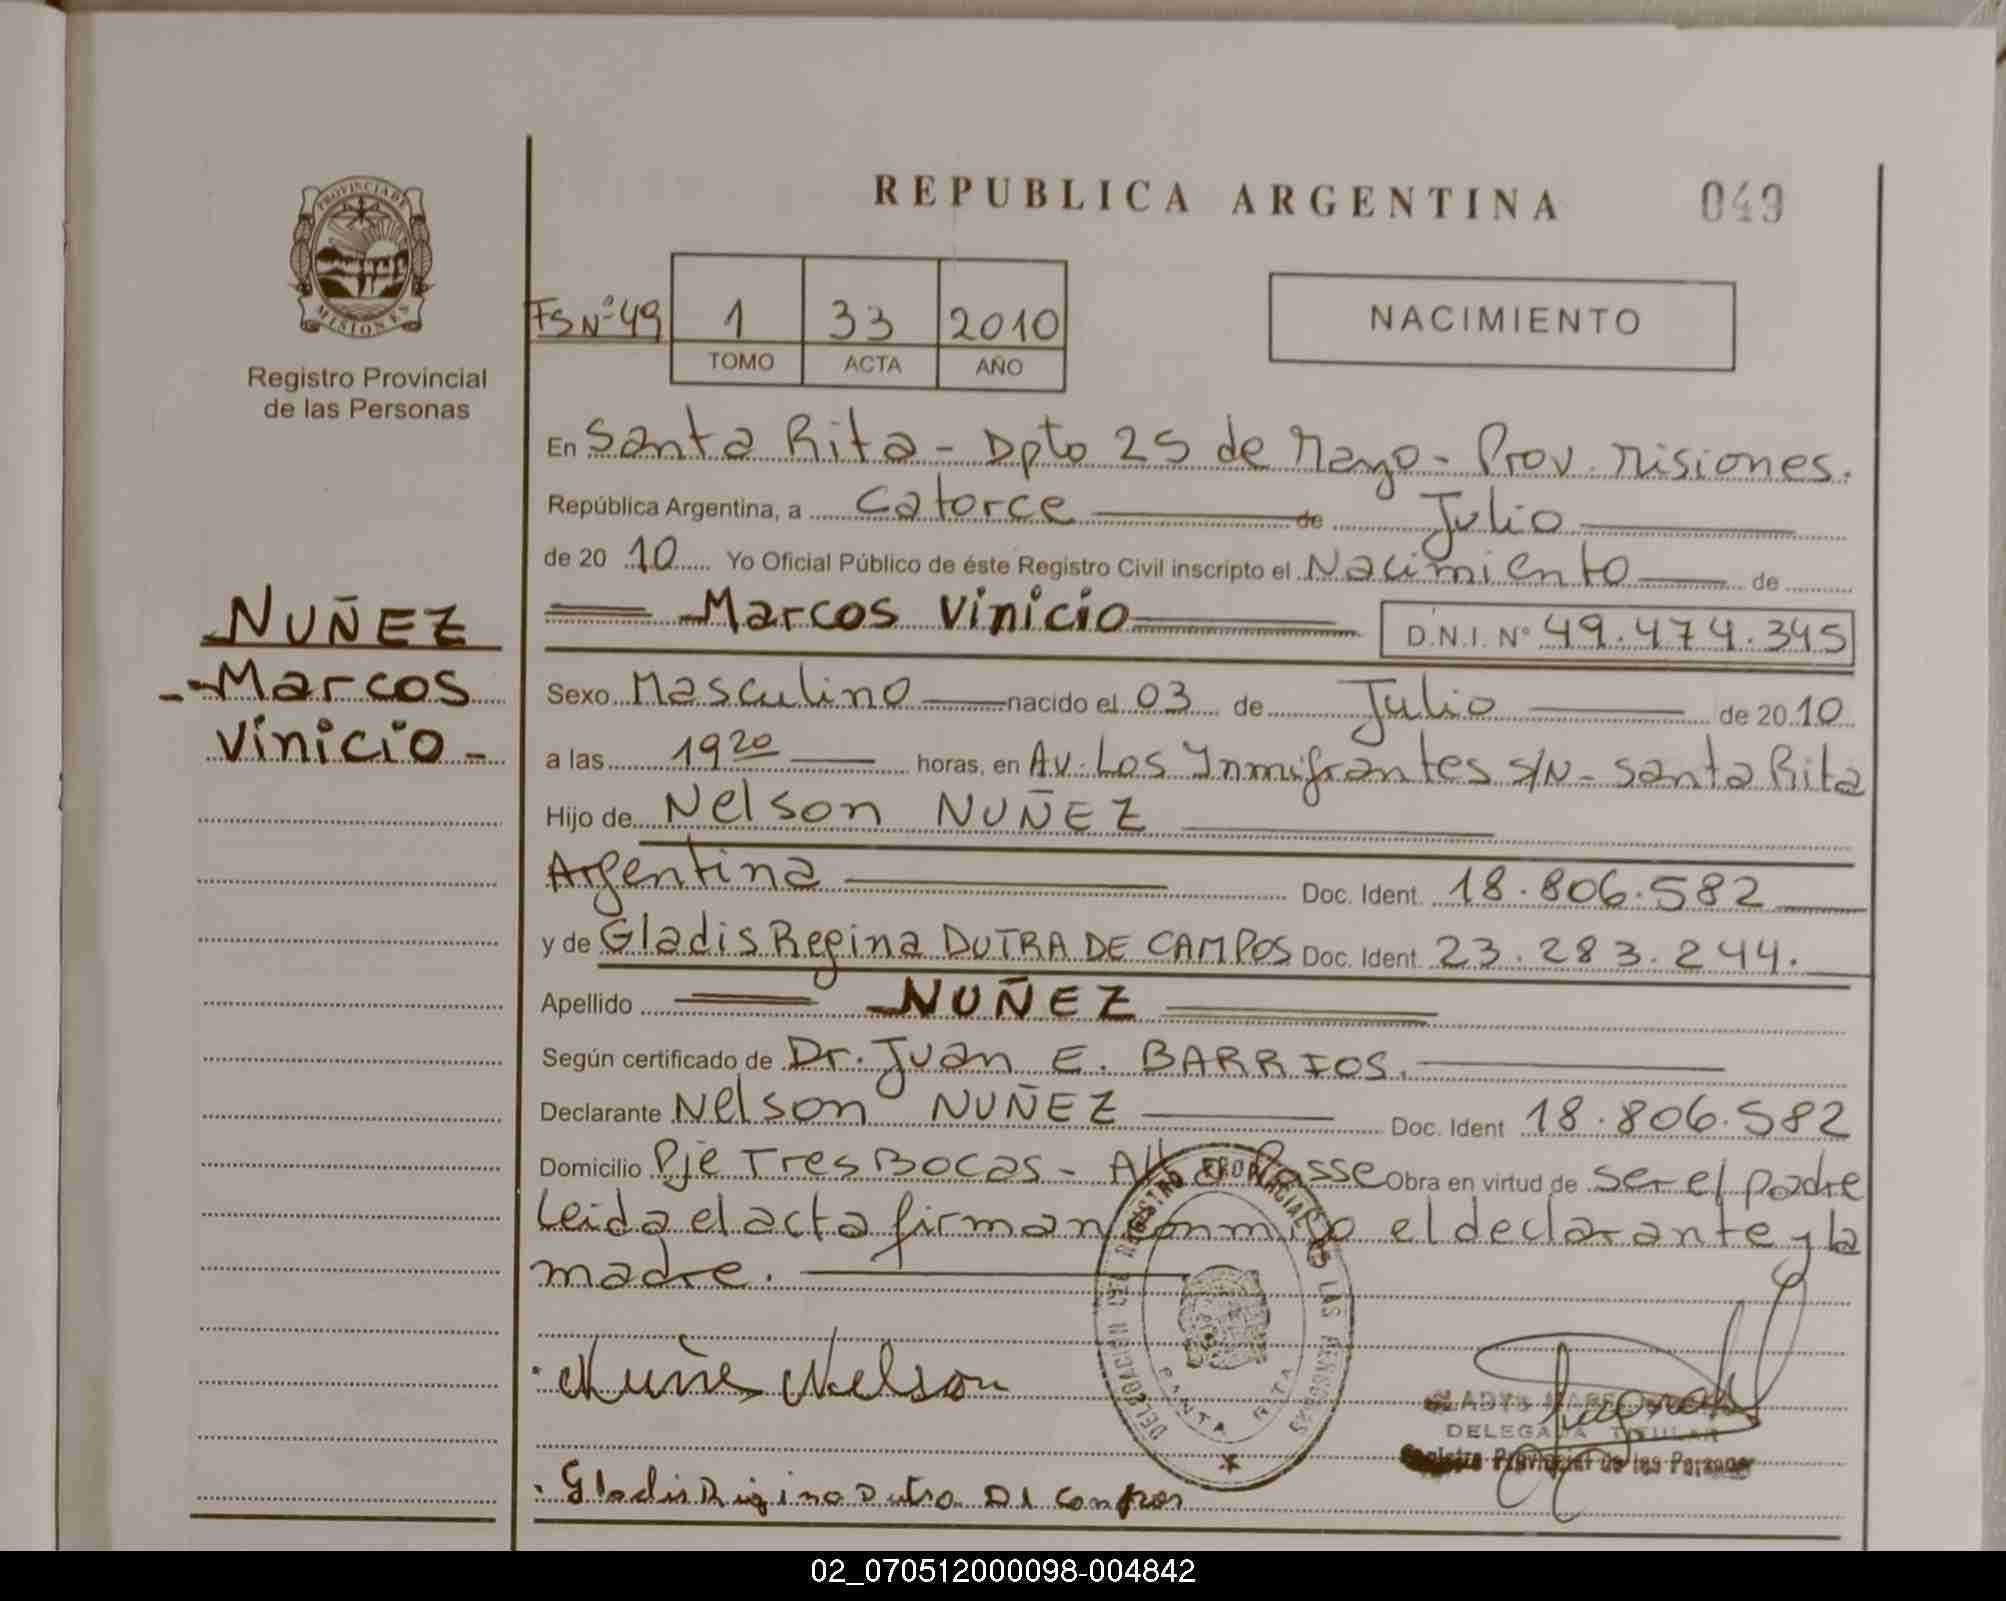 REPUBLICA ARGENTINA
049
PROVINCIA DE
MISIONES
Registro Provincial
de las Personas
FS Nº 49
1 33 2010
TOMO ACTA AÑO
NACIMIENTO
En Santa Rita - Dpto 25 de Mayo - Prov. Misiones.
República Argentina, a catorce de Julio
de 20 10 Yo Oficial Público de éste Registro Civil inscripto el Nacimiento de
Marcos Vinicio D.N.I. Nº 49.474.345
NUÑEZ
Marcos
Vinicio
Sexo Masculino nacido el 03 de Julio de 20 10
a las 19 20 horas, en Av. Los Inmigrantes S/N - Santa Rita
Hijo de Nelson NUÑEZ
Argentina Doc. Ident. 18.806.582
y de Gladis Regina DUTRA DE CAMPOS Doc. Ident. 23.283.244.
Apellido NUÑEZ
Según certificado de Dr. Juan E. BARRIOS.
Declarante Nelson NUÑEZ Doc. Ident 18.806.582
Domicilio Pje Tres Bocas - Alba Posse Obra en virtud de ser el padre
Leida el acta firman conmigo el declarante y la
madre.
DELEGACION DEL REGISTRO PROVINCIAL DE LAS PERSONAS
SANTA RITA
Nuñe Nelson
GLADYS
DELEGADA TITULAR
Registro Provincial de las Personas
Gladis Rigina Dutra De Campos
02_070512000098-004842